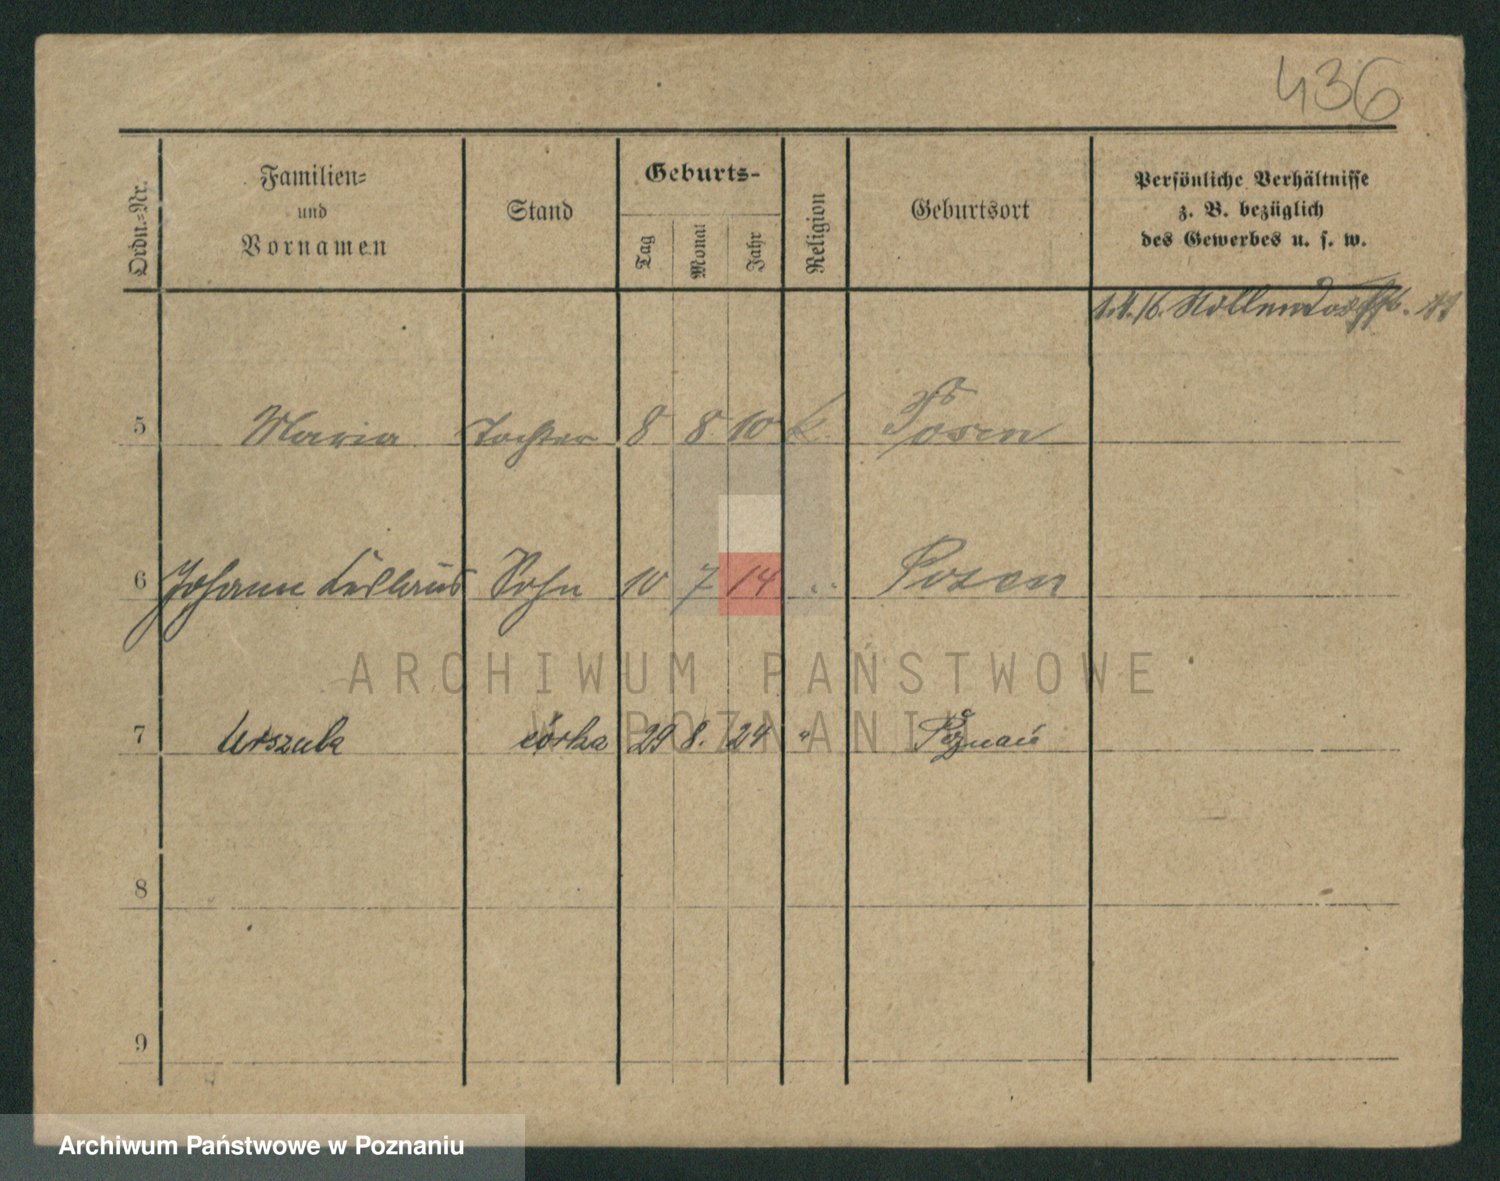 436
Ordn.=Nr.
Familien=
und
Vornamen
Stand
Geburts-
Tag
Monat
Jahr
Religion
Geburtsort
Persönliche Verhältnisse
z. B. bezüglich
des Gewerbes u. s. w.
5 Maria Tochter 8 8 10 k. Posen
6 Johann Sohn 10 7 14 " Posen
ARCHIWUM PAŃSTWOWE
W POZNANIU
7 Urszula córka 29 8. 24 " Poznań
8
9
Archiwum Państwowe w Poznaniu